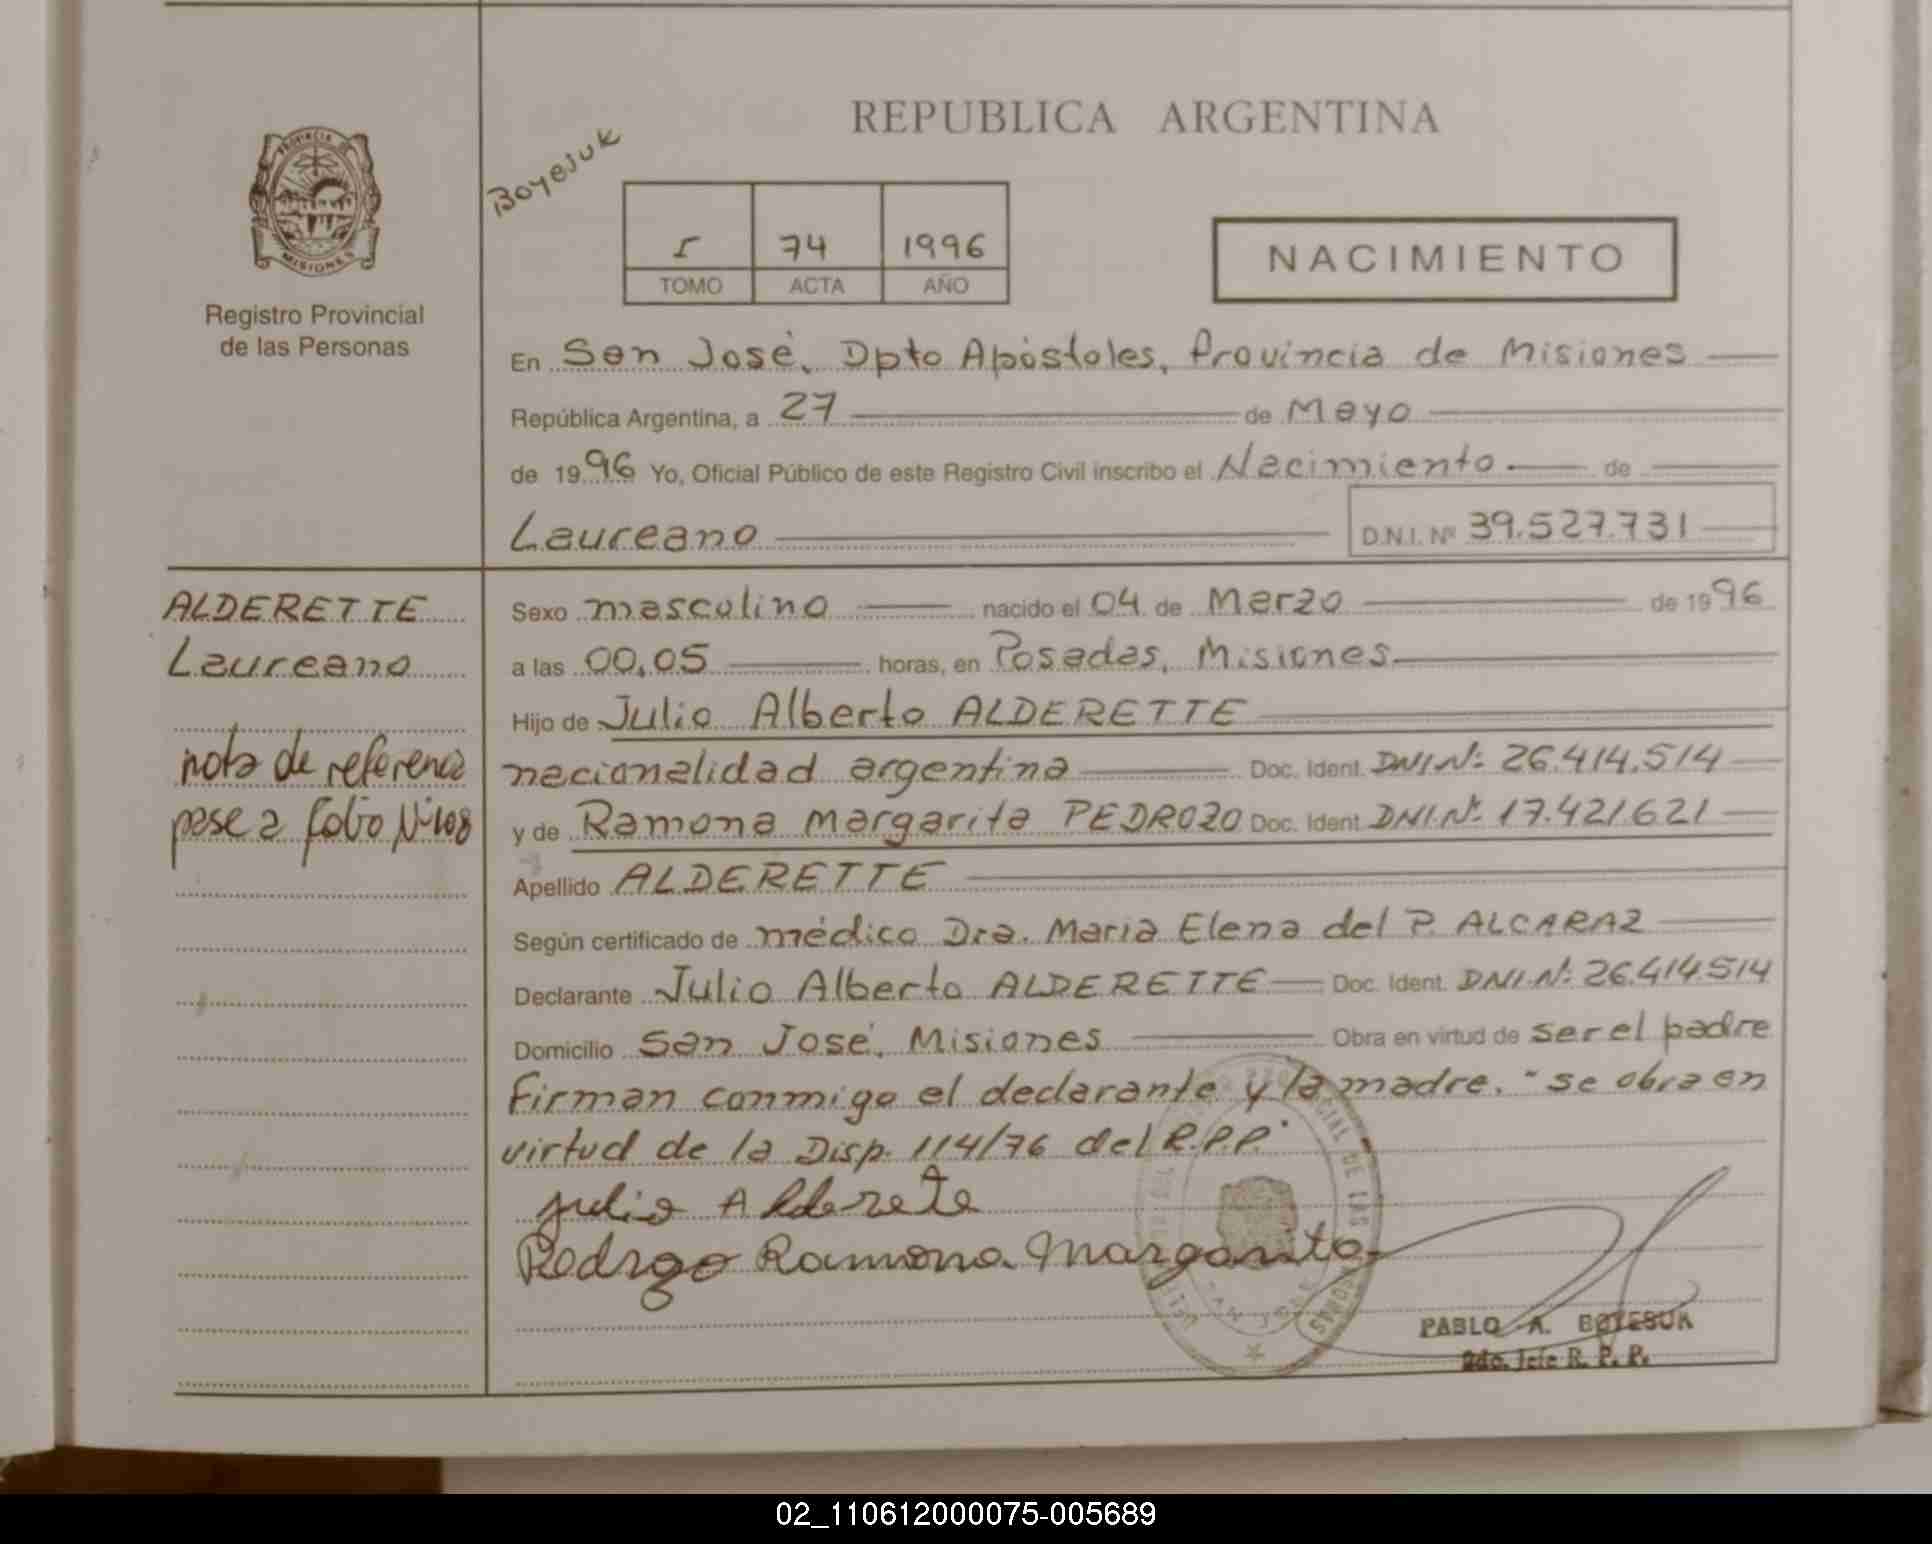 REPUBLICA ARGENTINA
PROVINCIA DE
MISIONES
Registro Provincial
de las Personas
Boyesuk
I 74 1996
TOMO ACTA AÑO
NACIMIENTO
En San José, Dpto Apóstoles, Provincia de Misiones
República Argentina, a 27 de Mayo
de 1996 Yo, Oficial Público de este Registro Civil inscribo el Nacimiento de
Laureano D.N.I. Nº 39.527.731
ALDERETTE
Laureano
nota de referencia
pase a folio Nº 108
Sexo masculino nacido el 04 de Marzo de 1996
a las 00,05 horas, en Posadas, Misiones
Hijo de Julio Alberto ALDERETTE
nacionalidad argentina Doc. Ident. DNI Nº: 26.414.514
y de Ramona Margarita PEDROZO Doc. Ident DNI Nº: 17.421.621
Apellido ALDERETTE
Según certificado de médico Dra. Maria Elena del P. ALCARAZ
Declarante Julio Alberto ALDERETTE Doc. Ident. DNI Nº: 26.414.514
Domicilio San José, Misiones Obra en virtud de ser el padre
Firman conmigo el declarante y la madre. "se obra en
virtud de la Disp. 114/76 del R.P.P."
Julio Alderete
Pedrozo Ramona Margarita
PABLO A. BOYESUK
2do. Jefe R. P. P.
02_110612000075-005689